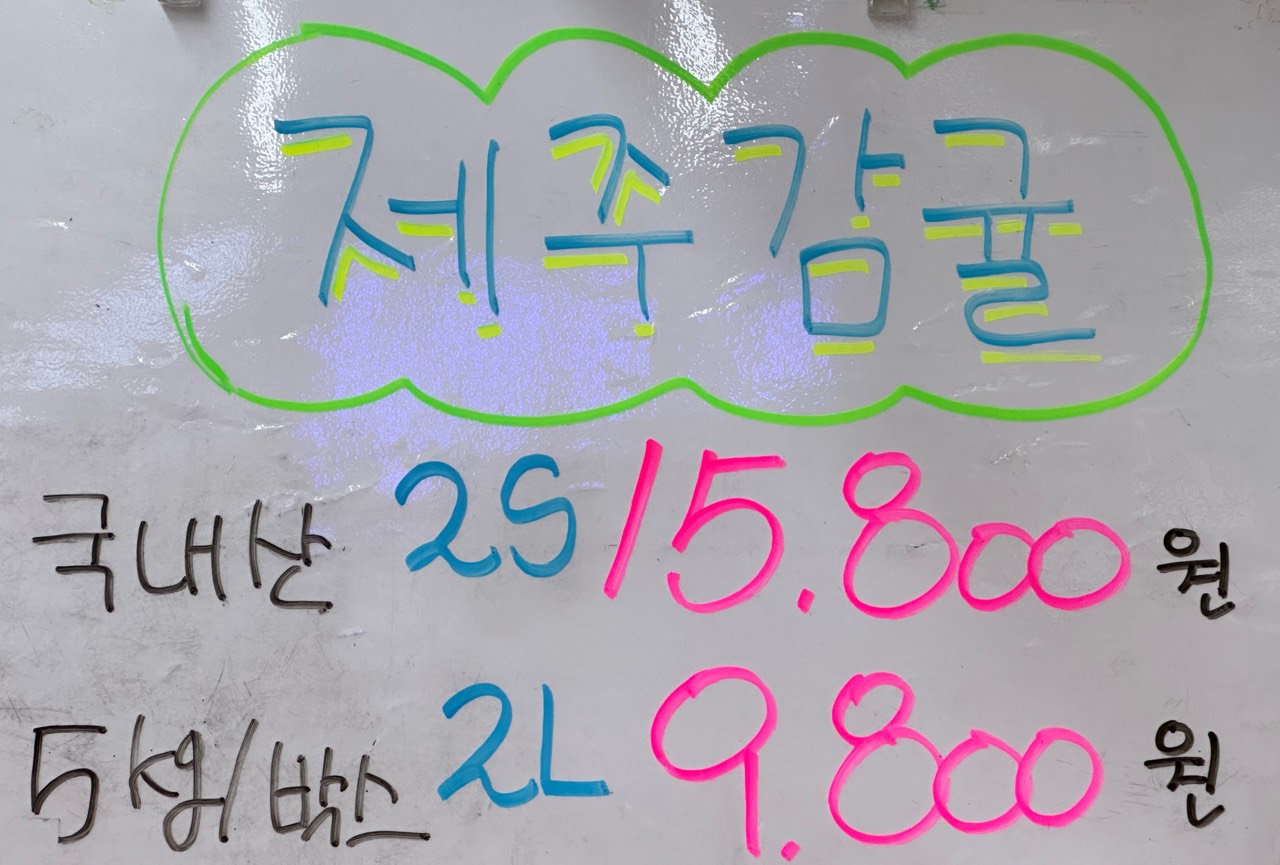 제주감귤
국내산 2S 15.800원
5kg/박스 2L 9.800원